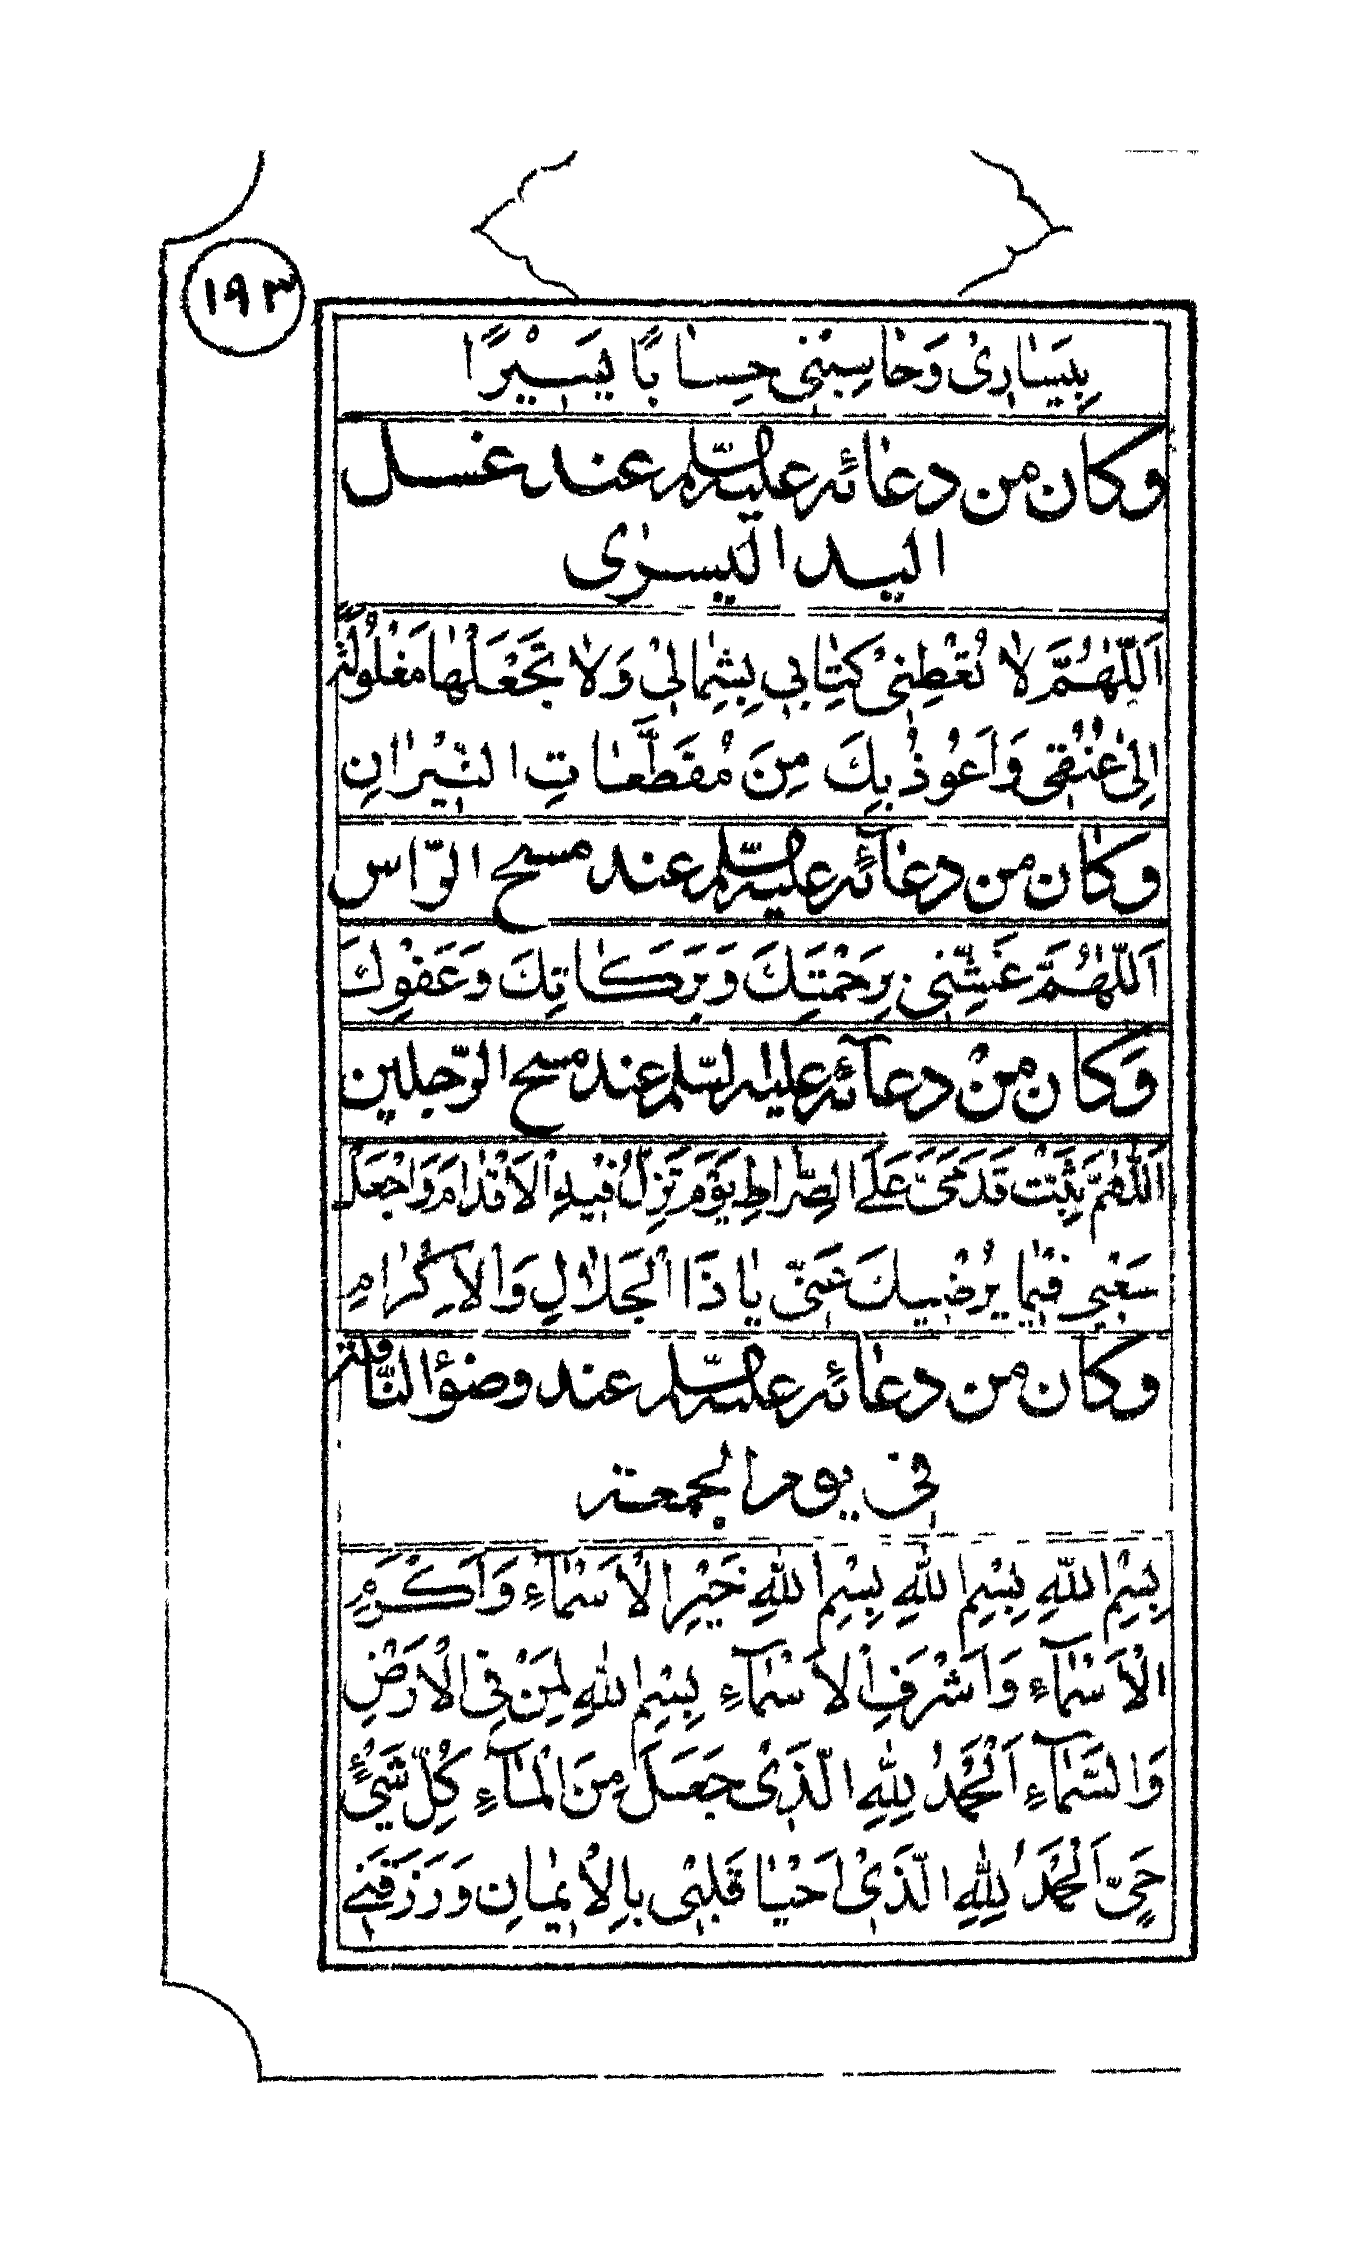 ١٩٣
بِيَسَارِىْ وَحَاسِبْنِى حِسَابًا يَسِيْرًا
وكان من دعائه عليه السّلم عند غسل
اليد اليسرٰى
اَللّٰهُمَّ لَا تُعْطِنِىْ كِتَابِى بِشِمَالِىْ وَلَا تَجْعَلْهَا مَغْلُولَةً
اِلىٰ عُنُقِى وَاَعُوْذُ بِكَ مِنْ مُقَطَّعَاتِ النِّيْرَانِ
وكان من دعائه عليه السّلم عند مسح الرّاس
اَللّٰهُمَّ غَشِّنِى بِرَحْمَتِكَ وَبَرَكَاتِكَ وَعَفْوِكَ
وَكان منْ دعآئه عليه السّلم عند مسح الرّجلين
اَللّٰهُمَّ ثَبِّتْ قَدَمَىَّ عَلَى الصِّرَاطِ يَوْمَ تَزِلُّ فِيْهِ الْاَقْدَامُ وَاجْعَلْ
سَعْيِى فِيْمَا يُرْضِيكَ عَنِّى يَا ذَا الْجَلَالِ وَالْاِكْرَامِ
وكان من دعائه عليه السّلم عند وضوٴ النّافلة
فى يوم الجمعة
بِسْمِ اللهِ بِسْمِ اللهِ بِسْمِ اللهِ خَيْرِ الْاَسْمَآءِ وَاَكْرَمِ
الْاَسْمَآءِ وَاَشْرَفِ الْاَسْمَآءِ بِسْمِ اللهِ لِمَنْ فِى الْاَرْضِ
وَالسَّمَآءِ اَلْحَمْدُ لِلّٰهِ الَّذِىْ جَعَلَ مِنَ الْمَآءِ كُلَّ شَىْءٍ
حَىٍّ اَلْحَمْدُ لِلّٰهِ الَّذِىْ اَحْيَا قَلْبِى بِالْاِيْمَانِ وَرَزَقَنِى